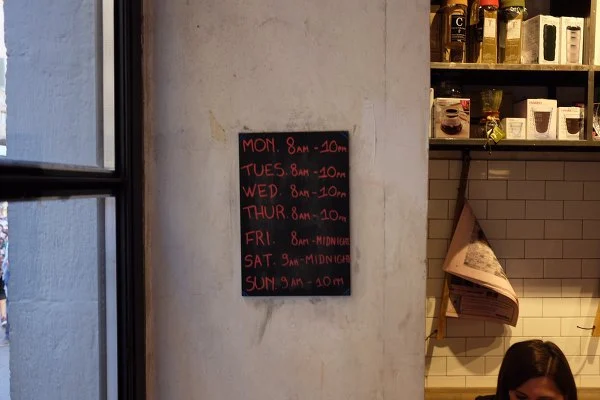 MON. 8AM - 10PM
TUES. 8AM - 10PM
WED. 8AM - 10PM
THUR. 8AM - 10PM
FRI. 8AM - MIDNIGHT
SAT. 9AM - MIDNIGHT
SUN. 9AM - 10PM